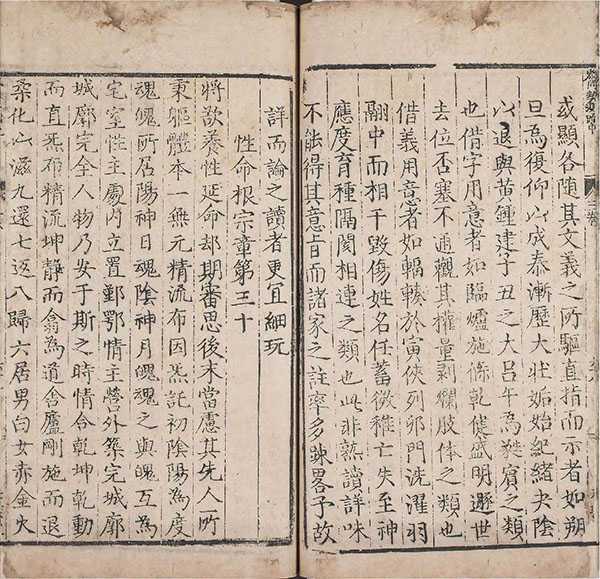 或顯各隨其文義之所驅直指而示者如朔
旦為復仰以成泰漸歷大壯姤始紀緒夬陰
以退與黄鍾建子丑之大吕午為蕤賔之類
也借字用意者如臨爐施條乾健盛明遯世
去位否塞不通觀其權量剥爛肢体之類也
借義用意者如輻輳於寅俠列卯門洗濯羽
翮中而相干毀傷姓名任蓄微稚亡失至神
應度育種隔閡相連之類也此非熟讀詳味
不能得其意旨而諸家之註率多踈畧予故
詳而論之讀者更宜細玩
性命根宗章第三十
將欲養性延命却期審思後末當慮其先人所
秉軀體本一無元精流布因炁託初陰陽為度
魂魄所居陽神日魂陰神月魄魂之與魄互為
宅室性主處内立置鄞鄂情主營外築完城廓
城廓完全人物乃安于斯之時情合乾坤乾動
而直炁布精流坤静而翕為道舍廬剛施而退
柔化以滋九還七返八歸六居男白女赤金火